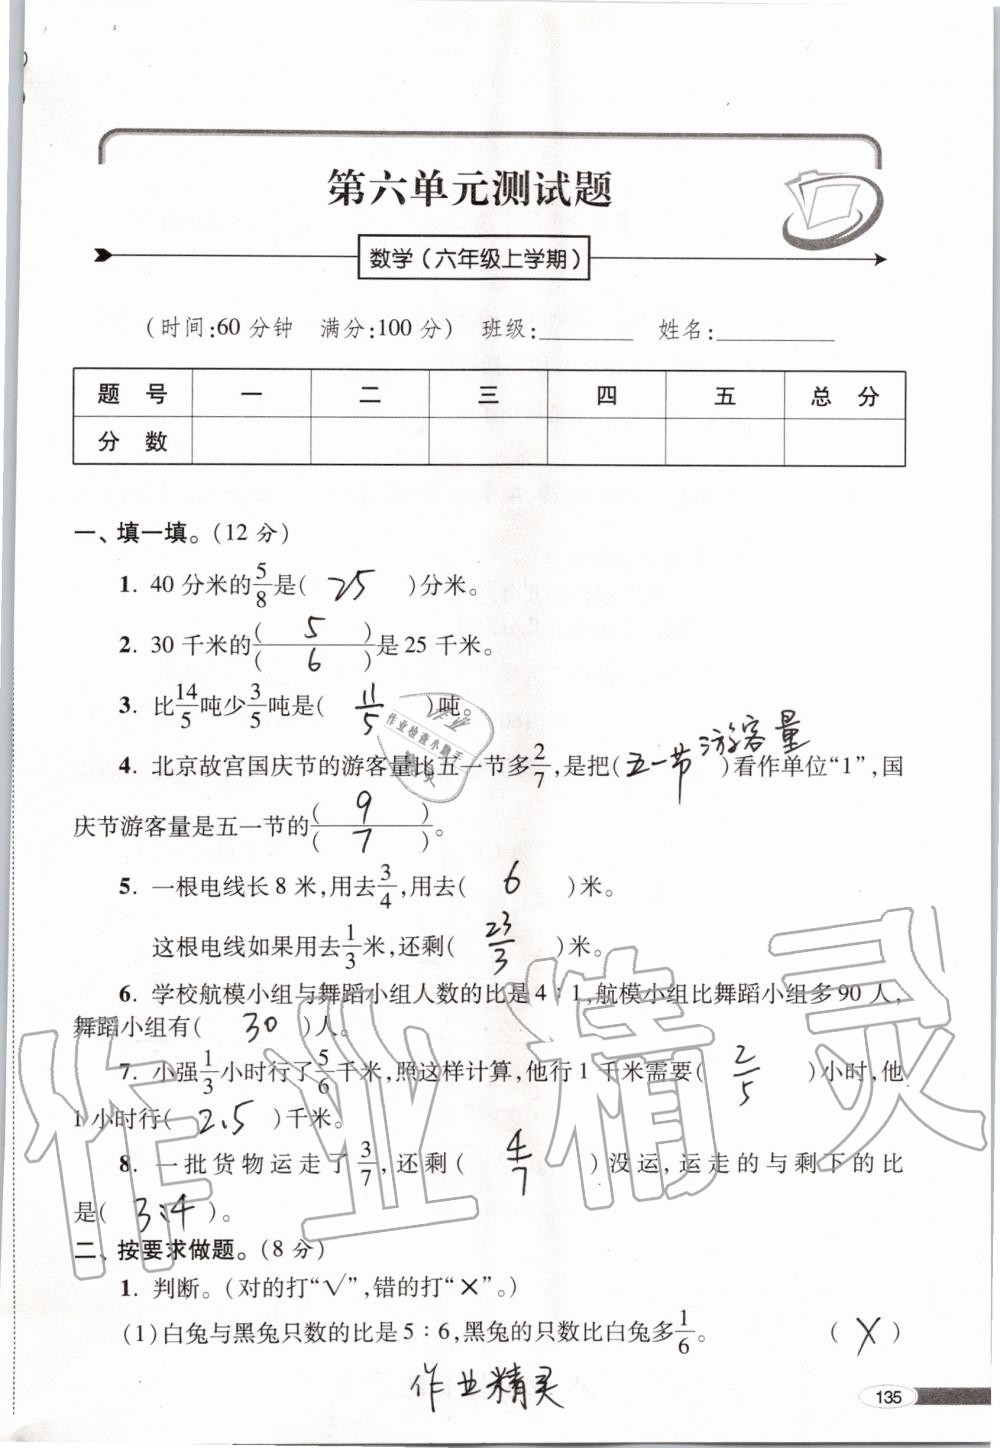 第六单元测试题
数学(六年级上学期)
(时间:60分钟 满分:100分) 班级:________ 姓名:__________
题 号 一 二 三 四 五 总 分
分 数
一、填一填。(12分)
1. 40分米的5/8是( 25 )分米。
2. 30千米的( 5 )/( 6 )是25千米。
3. 比14/5吨少3/5吨是( 11/5 )吨。
4. 北京故宫国庆节的游客量比五一节多2/7,是把(五一节游客量)看作单位“1”,国
庆节游客量是五一节的( 9 )/( 7 )。
5. 一根电线长8米,用去3/4,用去( 6 )米。
这根电线如果用去1/3米,还剩( 23/3 )米。
6. 学校航模小组与舞蹈小组人数的比是4∶1,航模小组比舞蹈小组多90人,
舞蹈小组有( 30 )人。
7. 小强1/3小时行了5/6千米,照这样计算,他行1千米需要( 2/5 )小时,他
1小时行( 2.5 )千米。
8. 一批货物运走了3/7,还剩( 4/7 )没运,运走的与剩下的比
是( 3:4 )。
二、按要求做题。(8分)
1. 判断。(对的打“√”,错的打“×”。)
(1)白兔与黑兔只数的比是5∶6,黑兔的只数比白兔多1/6。 ( X )
作业精灵
135
作业精灵
作业检查小助手